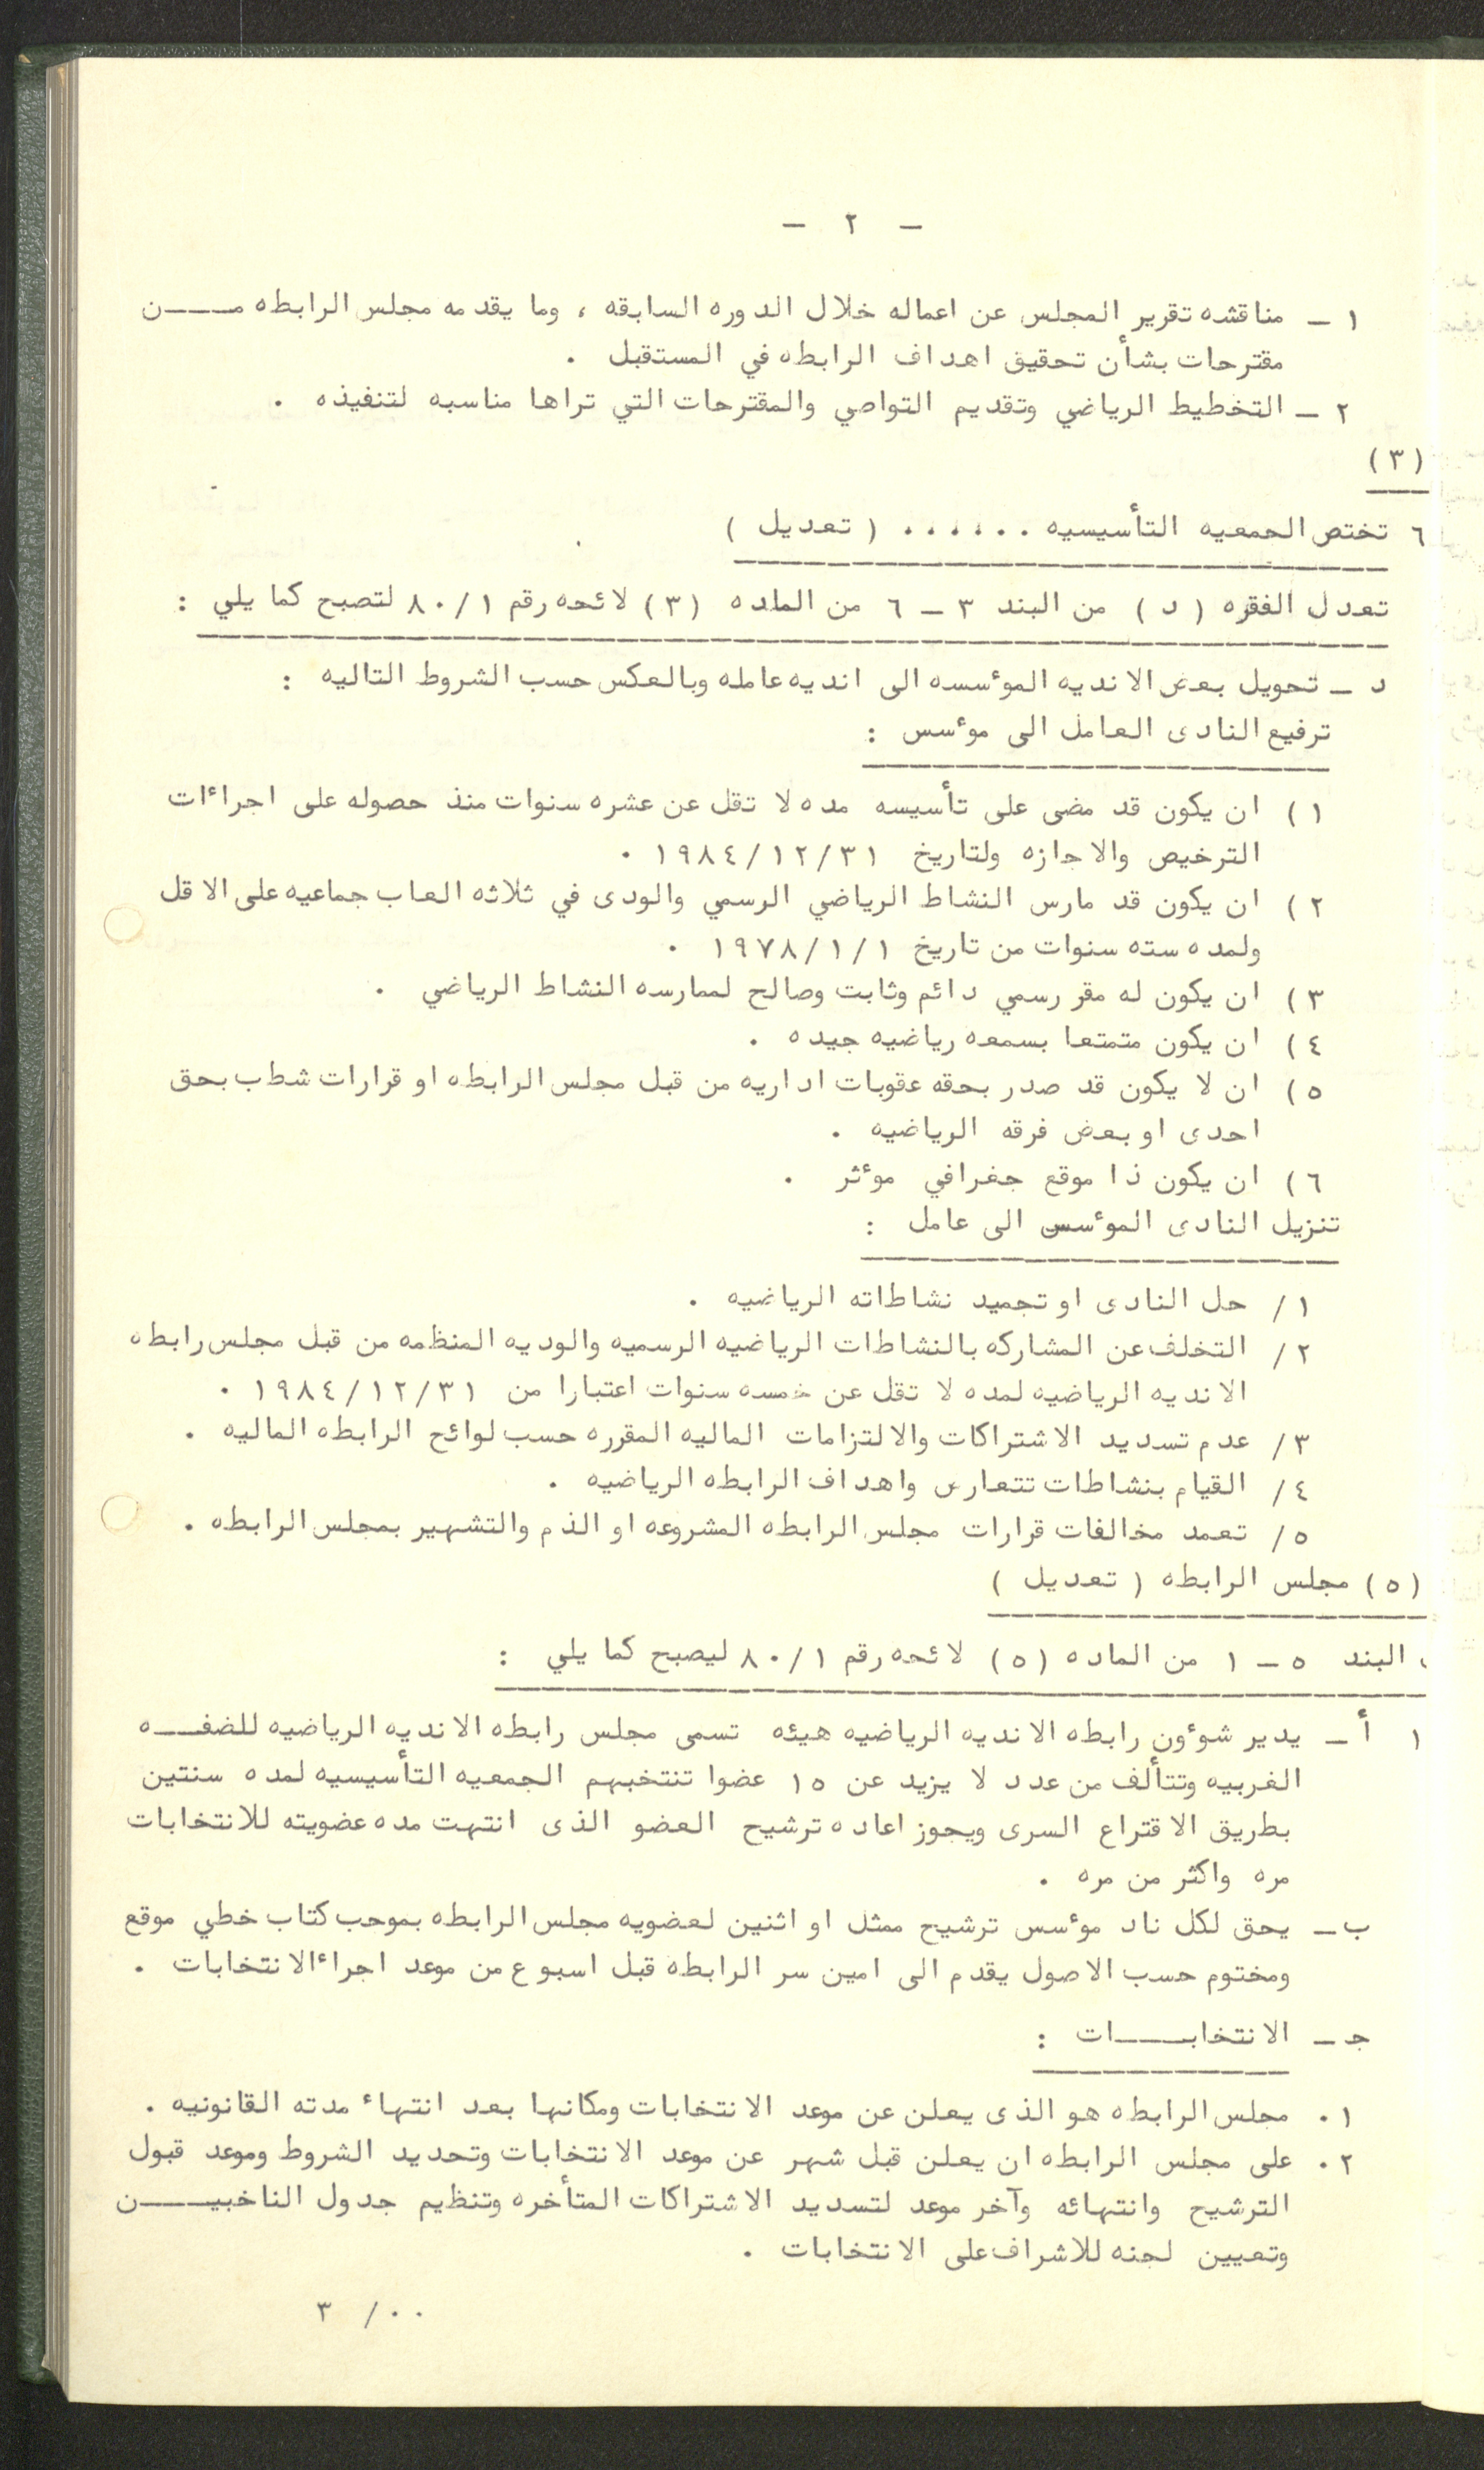 - ٢ -
١ - مناقشه تقرير المجلس عن اعماله خلال الدوره السابقه ، وما يقدمه مجلس الرابطه مــــن
مقترحات بشأن تحقيق اهداف الرابطه في المستقبل .
٢ - التخطيط الرياضي وتقديم التواصي والمقترحات التي تراها مناسبه لتنفيذه .
(٣)
٦ تختص الجمعيه التأسيسيه ...... ( تعديل )
تعدل الفقره ( د ) من البند ٣ - ٦ من الماده (٣) لائحه رقم ٨٠/١ لتصبح كما يلي :
د - تحويل بعض الانديه المؤسسه الى انديه عامله وبالعكس حسب الشروط التاليه :
ترفيع النادى العامل الى مؤسس :
١) ان يكون قد مضى على تأسيسه مده لا تقل عن عشره سنوات منذ حصوله على اجراءات
الترخيص والاجازه ولتاريخ ١٩٨٤/١٢/٣١ .
٢) ان يكون قد مارس النشاط الرياضي الرسمي والودى في ثلاثه العاب جماعيه على الاقل
ولمده سته سنوات من تاريخ ١٩٧٨/١/١ .
٣) ان يكون له مقر رسمي دائم وثابت وصالح لممارسه النشاط الرياضي .
٤) ان يكون متمتعا بسمعه رياضيه جيده .
٥) ان لا يكون قد صدر بحقه عقوبات اداريه من قبل مجلس الرابطه او قرارات شطب بحق
احدى او بعض فرقه الرياضيه .
٦) ان يكون ذا موقع جغرافي مؤثر .
تنزيل النادى المؤسس الى عامل :
١/ حل النادى او تجميد نشاطاته الرياضيه .
٢/ التخلف عن المشاركه بالنشاطات الرياضيه الرسميه والوديه المنظمه من قبل مجلس رابطه
الانديه الرياضيه لمده لا تقل عن خمسه سنوات اعتبارا من ١٩٨٤/١٢/٣١ .
٣/ عدم تسديد الاشتراكات والالتزامات الماليه المقرره حسب لوائح الرابطه الماليه .
٤/ القيام بنشاطات تتعارض واهداف الرابطه الرياضيه .
٥/ تعمد مخالفات قرارات مجلس الرابطه المشروعه او الذم والتشهير بمجلس الرابطه .
(٥) مجلس الرابطه ( تعديل )
البند ٥ - ١ من الماده (٥) لائحه رقم ٨٠/١ ليصبح كما يلي :
١ أ - يدير شؤون رابطه الانديه الرياضيه هيئه تسمى مجلس رابطه الانديه الرياضيه للضفــه
الغربيه وتتألف من عدد لا يزيد عن ١٥ عضوا تنتخبهم الجمعيه التأسيسيه لمده سنتين
بطريق الاقتراع السرى ويجوز اعاده ترشيح العضو الذى انتهت مده عضويته للانتخابات
مره واكثر من مره .
ب - يحق لكل ناد مؤسس ترشيح ممثل او اثنين لعضويه مجلس الرابطه بموجب كتاب خطي موقع
ومختوم حسب الاصول يقدم الى امين سر الرابطه قبل اسبوع من موعد اجراء الانتخابات .
جـ - الانتخابــــات :
١ . مجلس الرابطه هو الذى يعلن عن موعد الانتخابات ومكانها بعد انتهاء مدته القانونيه .
٢ . على مجلس الرابطه ان يعلن قبل شهر عن موعد الانتخابات وتحديد الشروط وموعد قبول
الترشيح وانتهائه وآخر موعد لتسديد الاشتراكات المتأخره وتنظيم جدول الناخبيــــن
وتعيين لجنه للاشراف على الانتخابات .
../ ٣